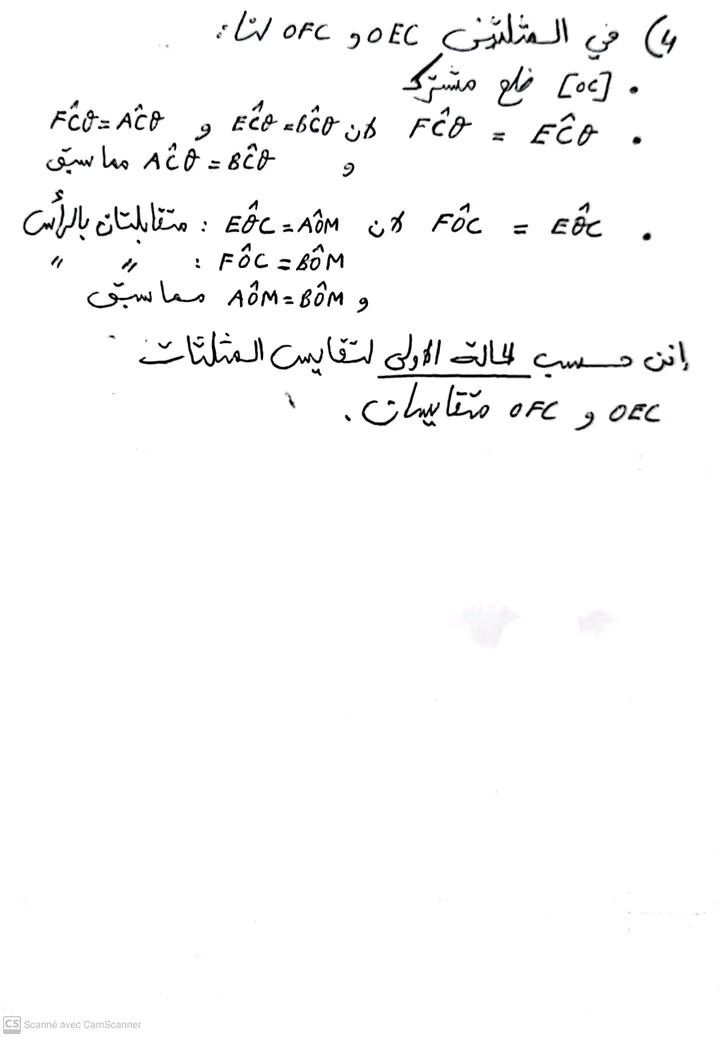 4) في المثلثين OEC و OFC لنا:
• [OC] ضلع مشترك
• EĈO = FĈO لان EĈO=BĈO و FĈO=AĈO
و AĈO=BĈO مما سبق
• EÔC = FÔC لان EÔC=AÔM : متقابلتان بالرأس
FÔC=BÔM : " "
و AÔM=BÔM مما سبق
إذن حسب الحالة الاولى لتقايس المثلثات
OEC و OFC متقايسان.
CS Scanné avec CamScanner